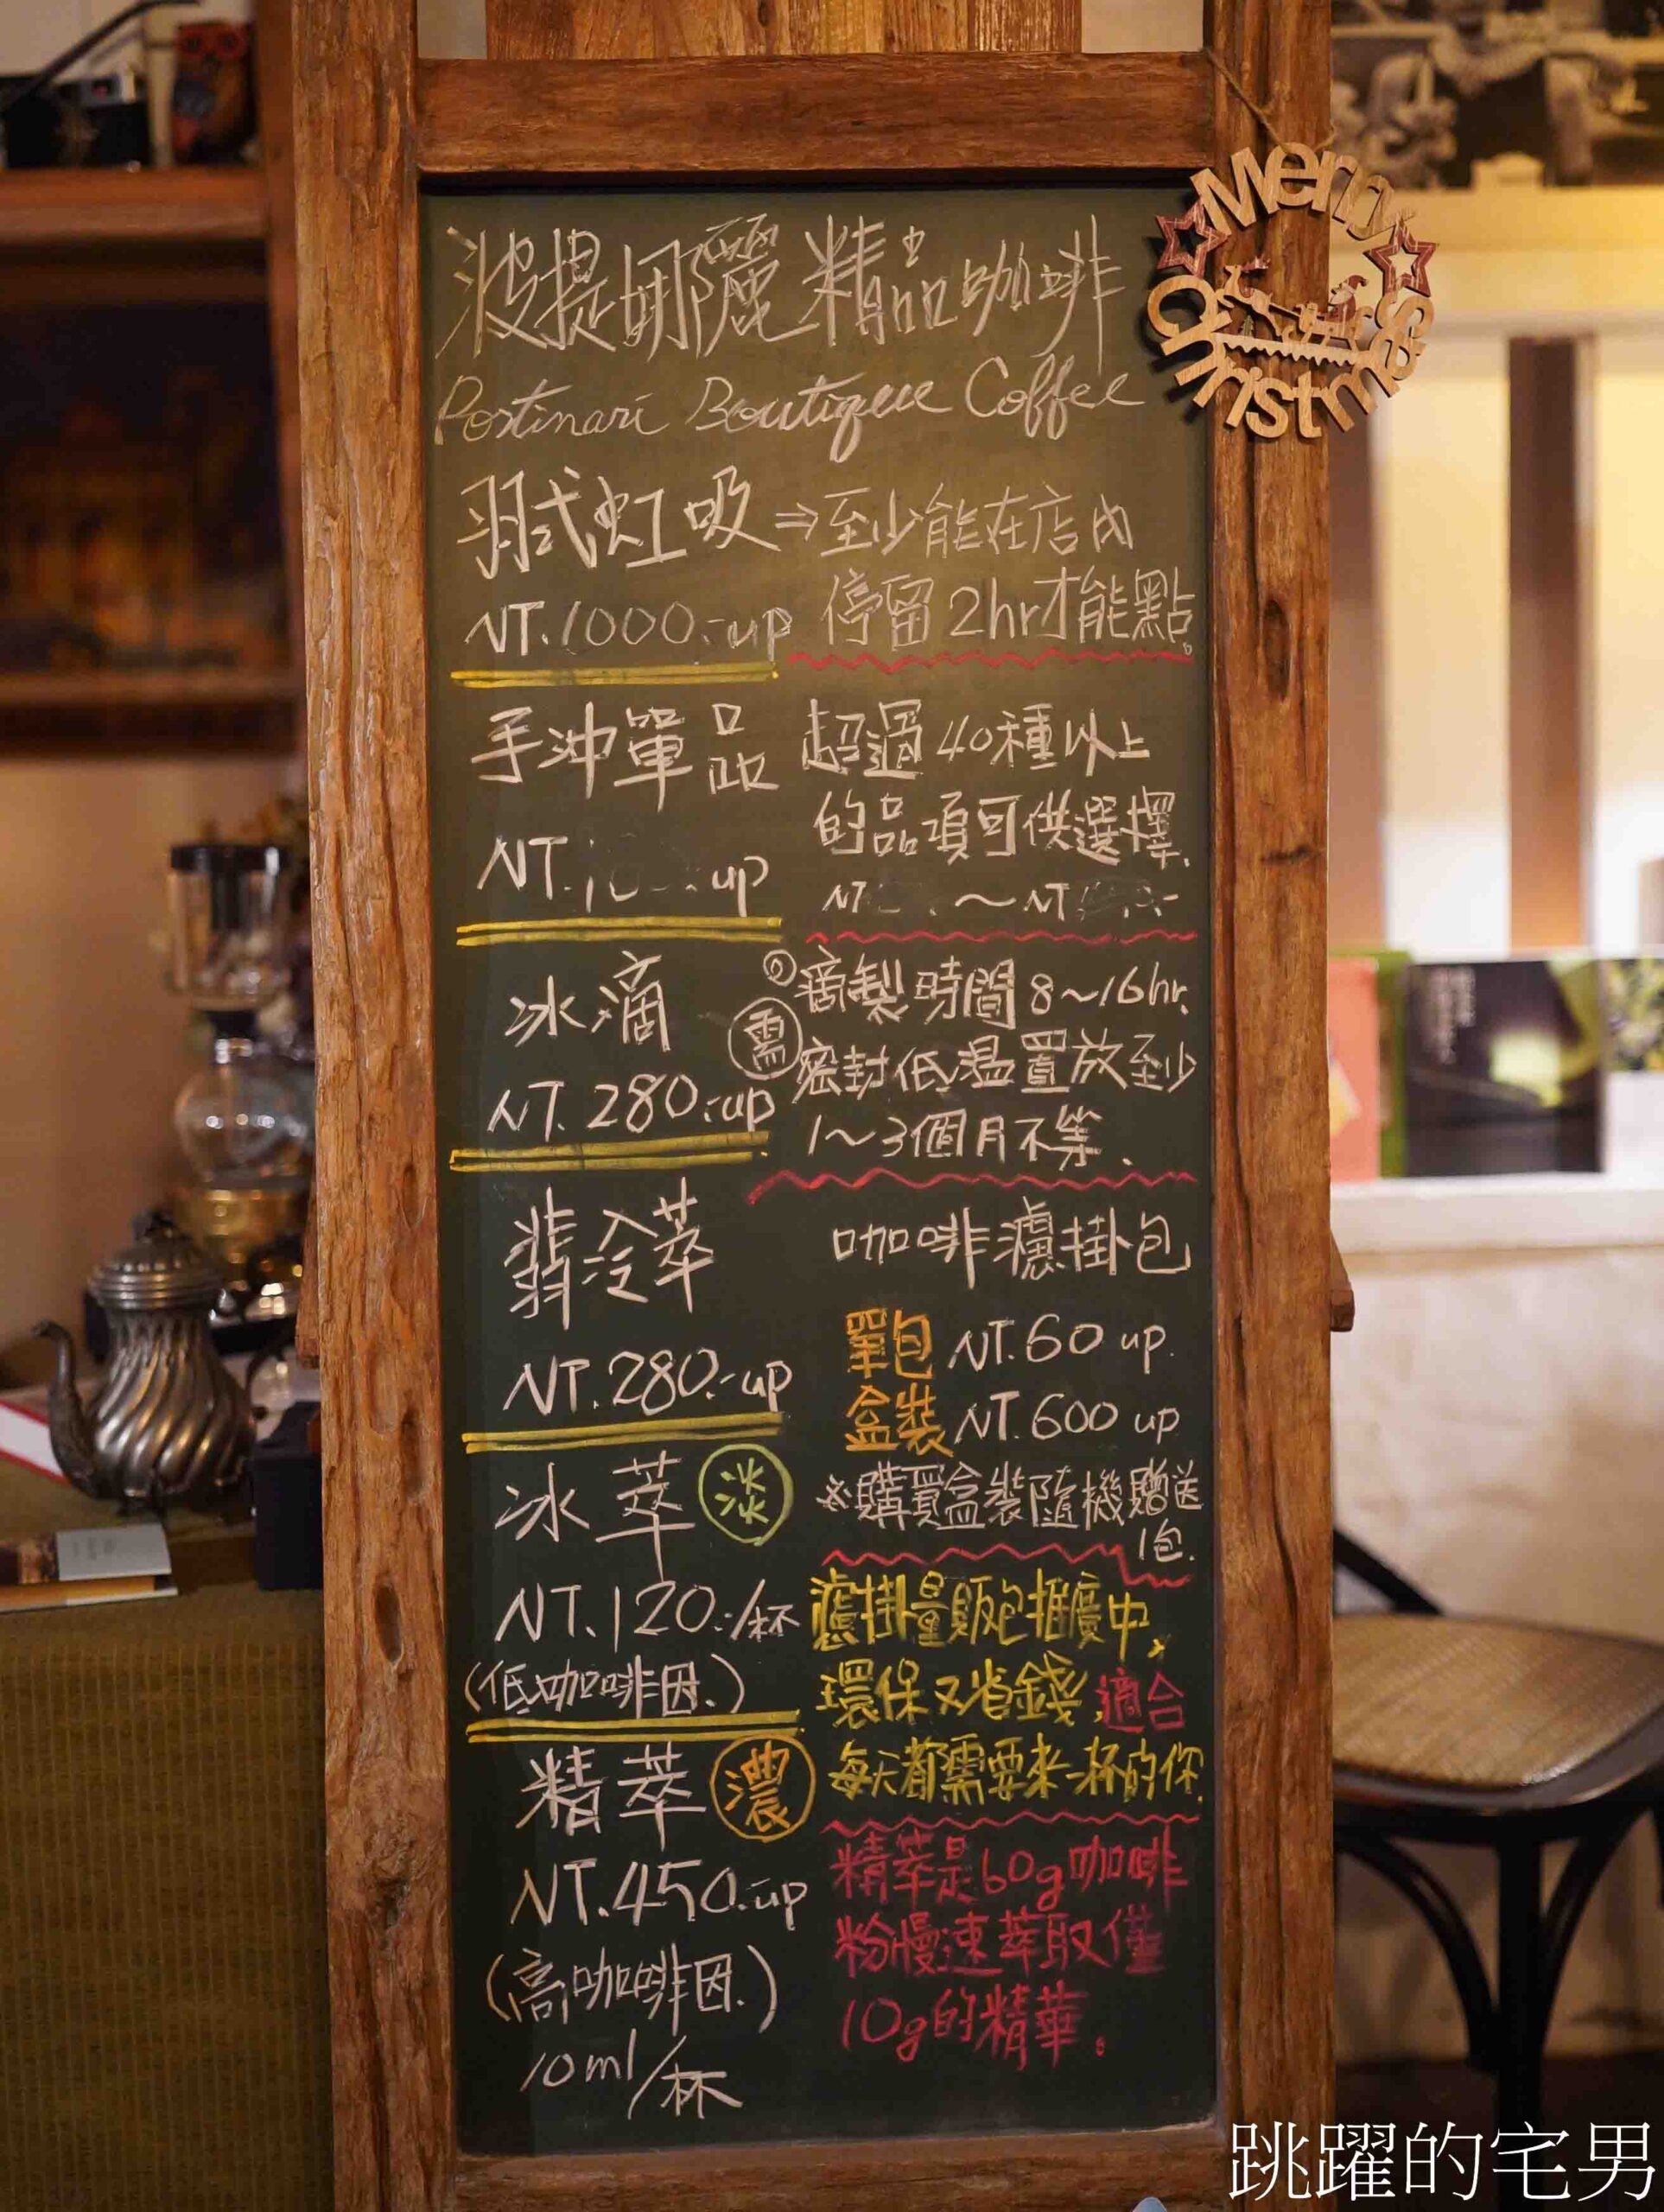 Merry
Christmas
波提娜麗精品咖啡
Portinari Boutique Coffee
羽式虹吸⇒至少能在店內
停留2hr才能點。
NT.1000.-up
手沖單品
超過40種以上
的品項可供選擇.
NT. up
NT ~NT
冰滴
NT.280.-up
◎滴製時間8~16hr.
需密封低溫置放至少
1~3個月不等、
翡冷萃
NT.280.-up
咖啡濾掛包
單包NT.60 up.
盒裝NT.600 up
※購買盒裝隨機贈送
1包.
冰萃 淡
NT.120.-/杯
(低咖啡因.)
濾掛量販包推廣中,
環保又省錢,適合
每天都需要來一杯的你.
精萃 濃
NT.450.-up
(高咖啡因.)
10ml/杯
精萃是60g咖啡
粉慢速萃取僅
10g的精華。
跳躍的宅男